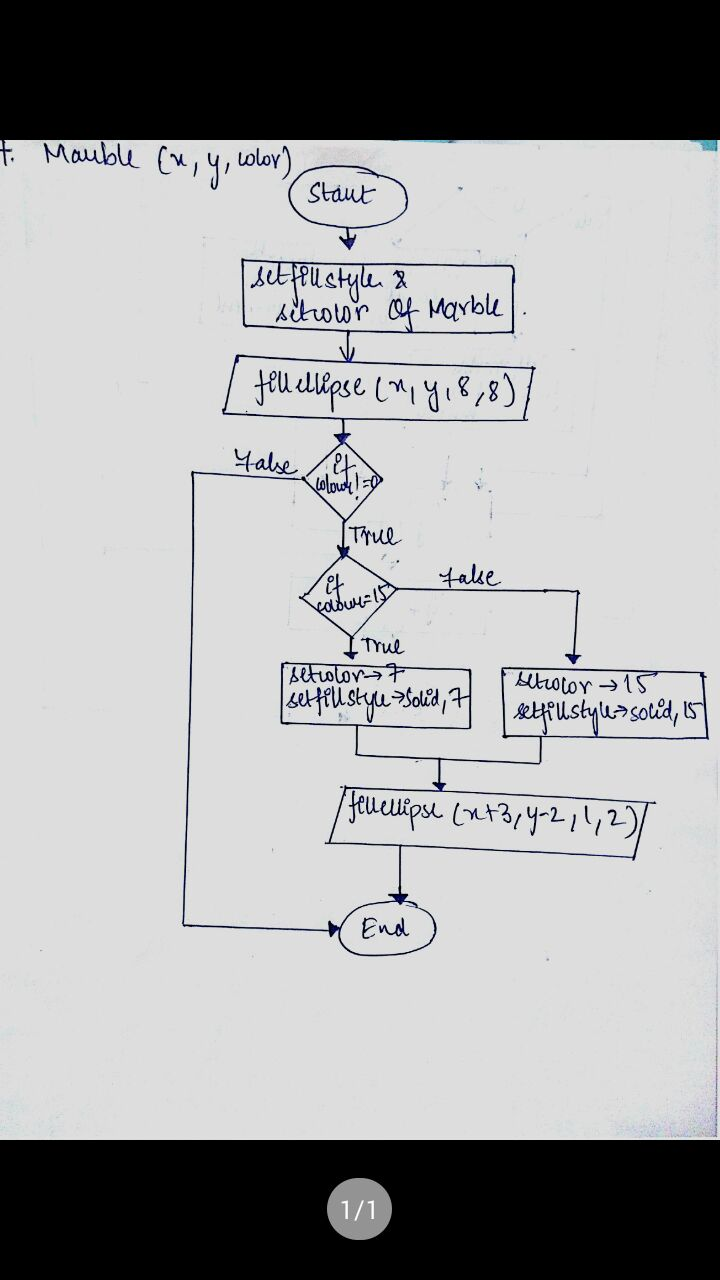 7. Marble (x, y, color)
Start
setfillstyle &
setcolor Of Marble.
fillellipse (x, y, 8, 8)
False
if
colour!=0
True
if
colour=15
False
True
setcolor→7
setfillstyle→Solid, 7
setcolor→15
setfillstyle→solid, 15
fillellipse (x+3, y-2, 1, 2)
End
1/1